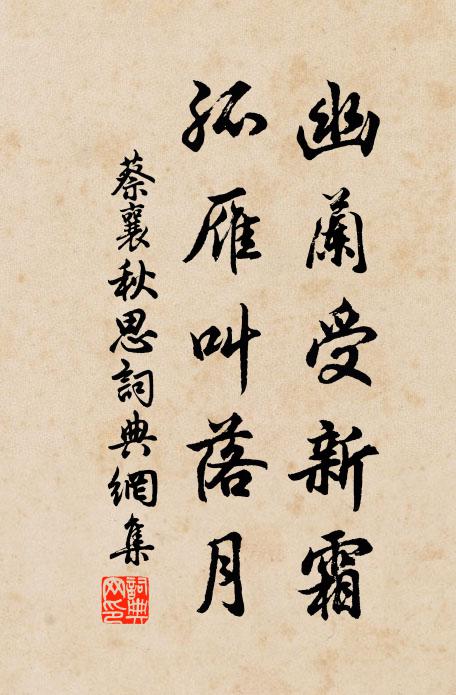 幽蘭受新霜
孤雁叫落月
蔡襄秋思詞典網集
詞典網印